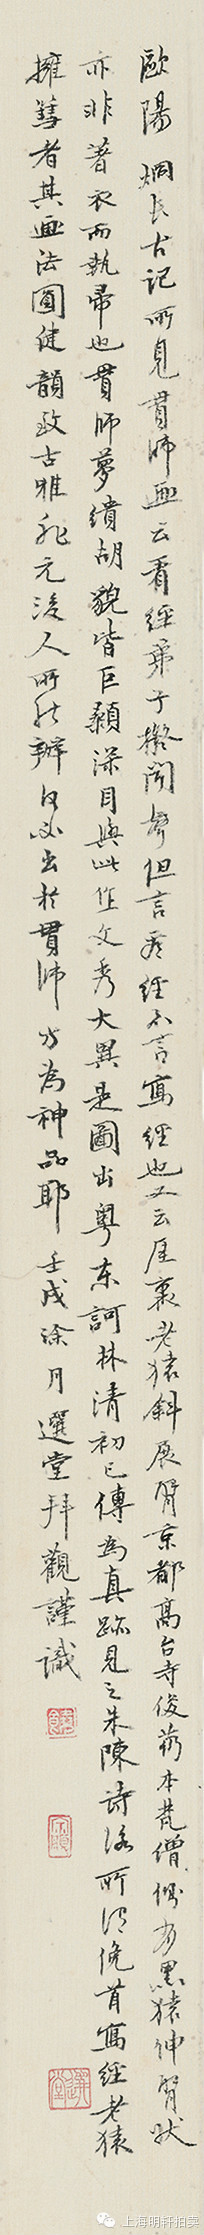 歐陽炯長古記所見貫師画云看經弟子擬聞聲但言看經不言寫經也又云崖裏老猿斜展臂京都高台寺俊芿本梵僧側有黑猿伸臂狀
亦非著衣而執帚也貫師夢繢胡貌皆巨顙深目與此作文秀大異是圖出粤东訶林清初已傳為真跡見之朱陳詩詠所謂俛首寫經老猿
擁彗者其画法圓健韻致古雅非元後人所能辦何必出於貫師方為神品耶 壬戌涂月選堂拜觀謹識
選堂
上海明轩拍卖